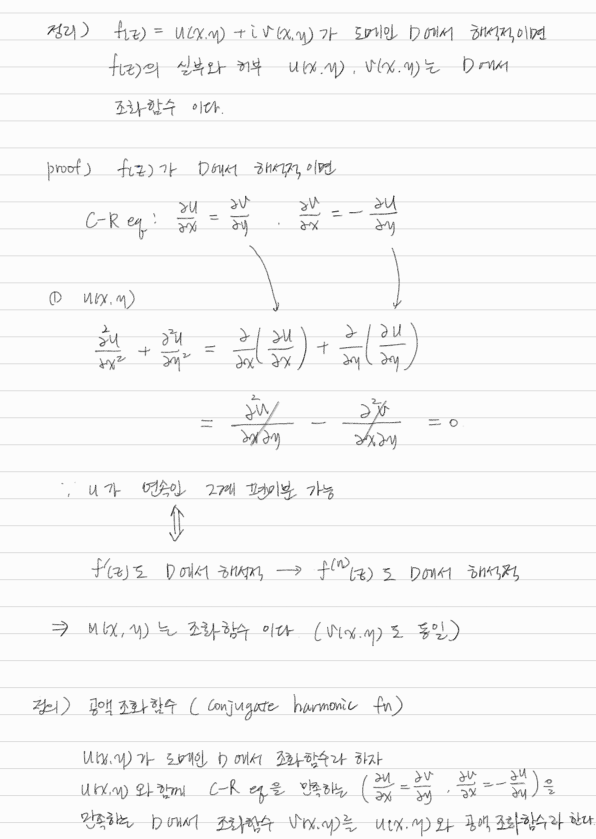 정리) f(z) = u(x.y) + i v(x.y) 가 도메인 D에서 해석적이면
f(z)의 실부와 허부 u(x.y), v(x.y)는 D에서
조화함수 이다.
proof) f(z)가 D에서 해석적이면
C-R eq : ∂u/∂x = ∂v/∂y . ∂v/∂x = - ∂u/∂y
① u(x.y)
∂²u/∂x² + ∂²u/∂y² = ∂/∂x(∂u/∂x) + ∂/∂y(∂u/∂y)
= ∂²v/∂x∂y - ∂²v/∂x∂y = 0
∵ u가 연속인 2계 편미분 가능
⇕
f'(z)도 D에서 해석적 → f⁽ⁿ⁾(z)도 D에서 해석적
⇒ u(x,y)는 조화함수 이다 (v(x.y)도 동일)
정의) 공액조화함수 ( conjugate harmonic fn)
u(x.y)가 도메인 D에서 조화함수라 하자
u(x.y)와 함께 C-R eq을 만족하는 (∂u/∂x = ∂v/∂y . ∂v/∂x = -∂u/∂y)을
만족하는 D에서 조화함수 v(x.y)를 u(x.y)와 공액조화함수라 한다